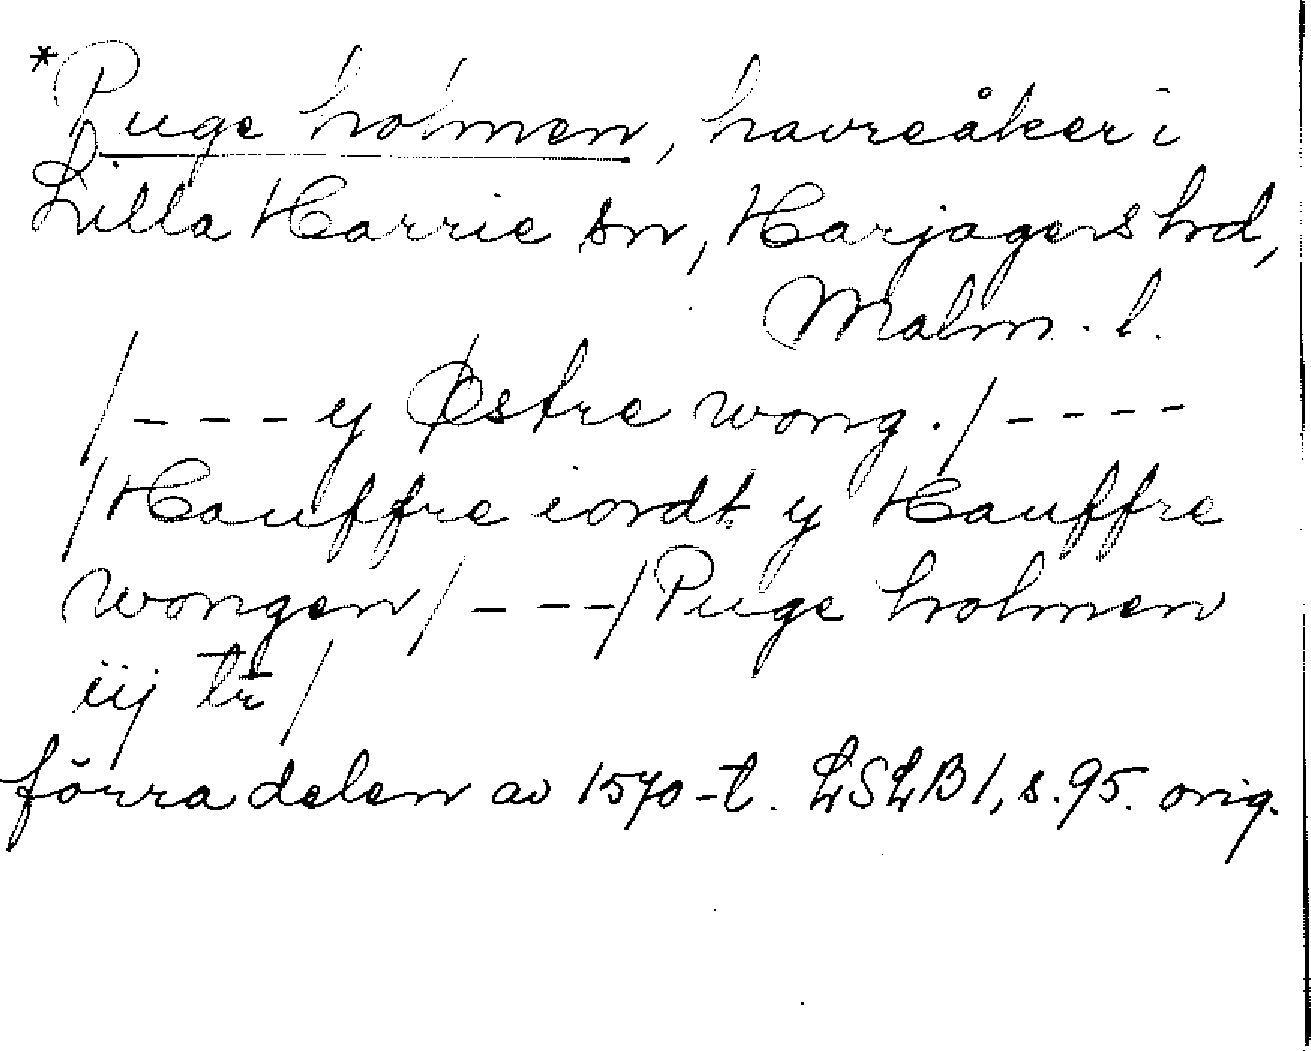 *Puge holmen, havreåker i
Lilla Harrie sn, Harjagers hd,
Malm. l.
/---- y Østre wong. /----
/Hauffre iordt y Hauffre
wongen/ ---/Puge holmen
iij tr/
förra delen av 1570-t. LSLB 1, s. 95. orig.